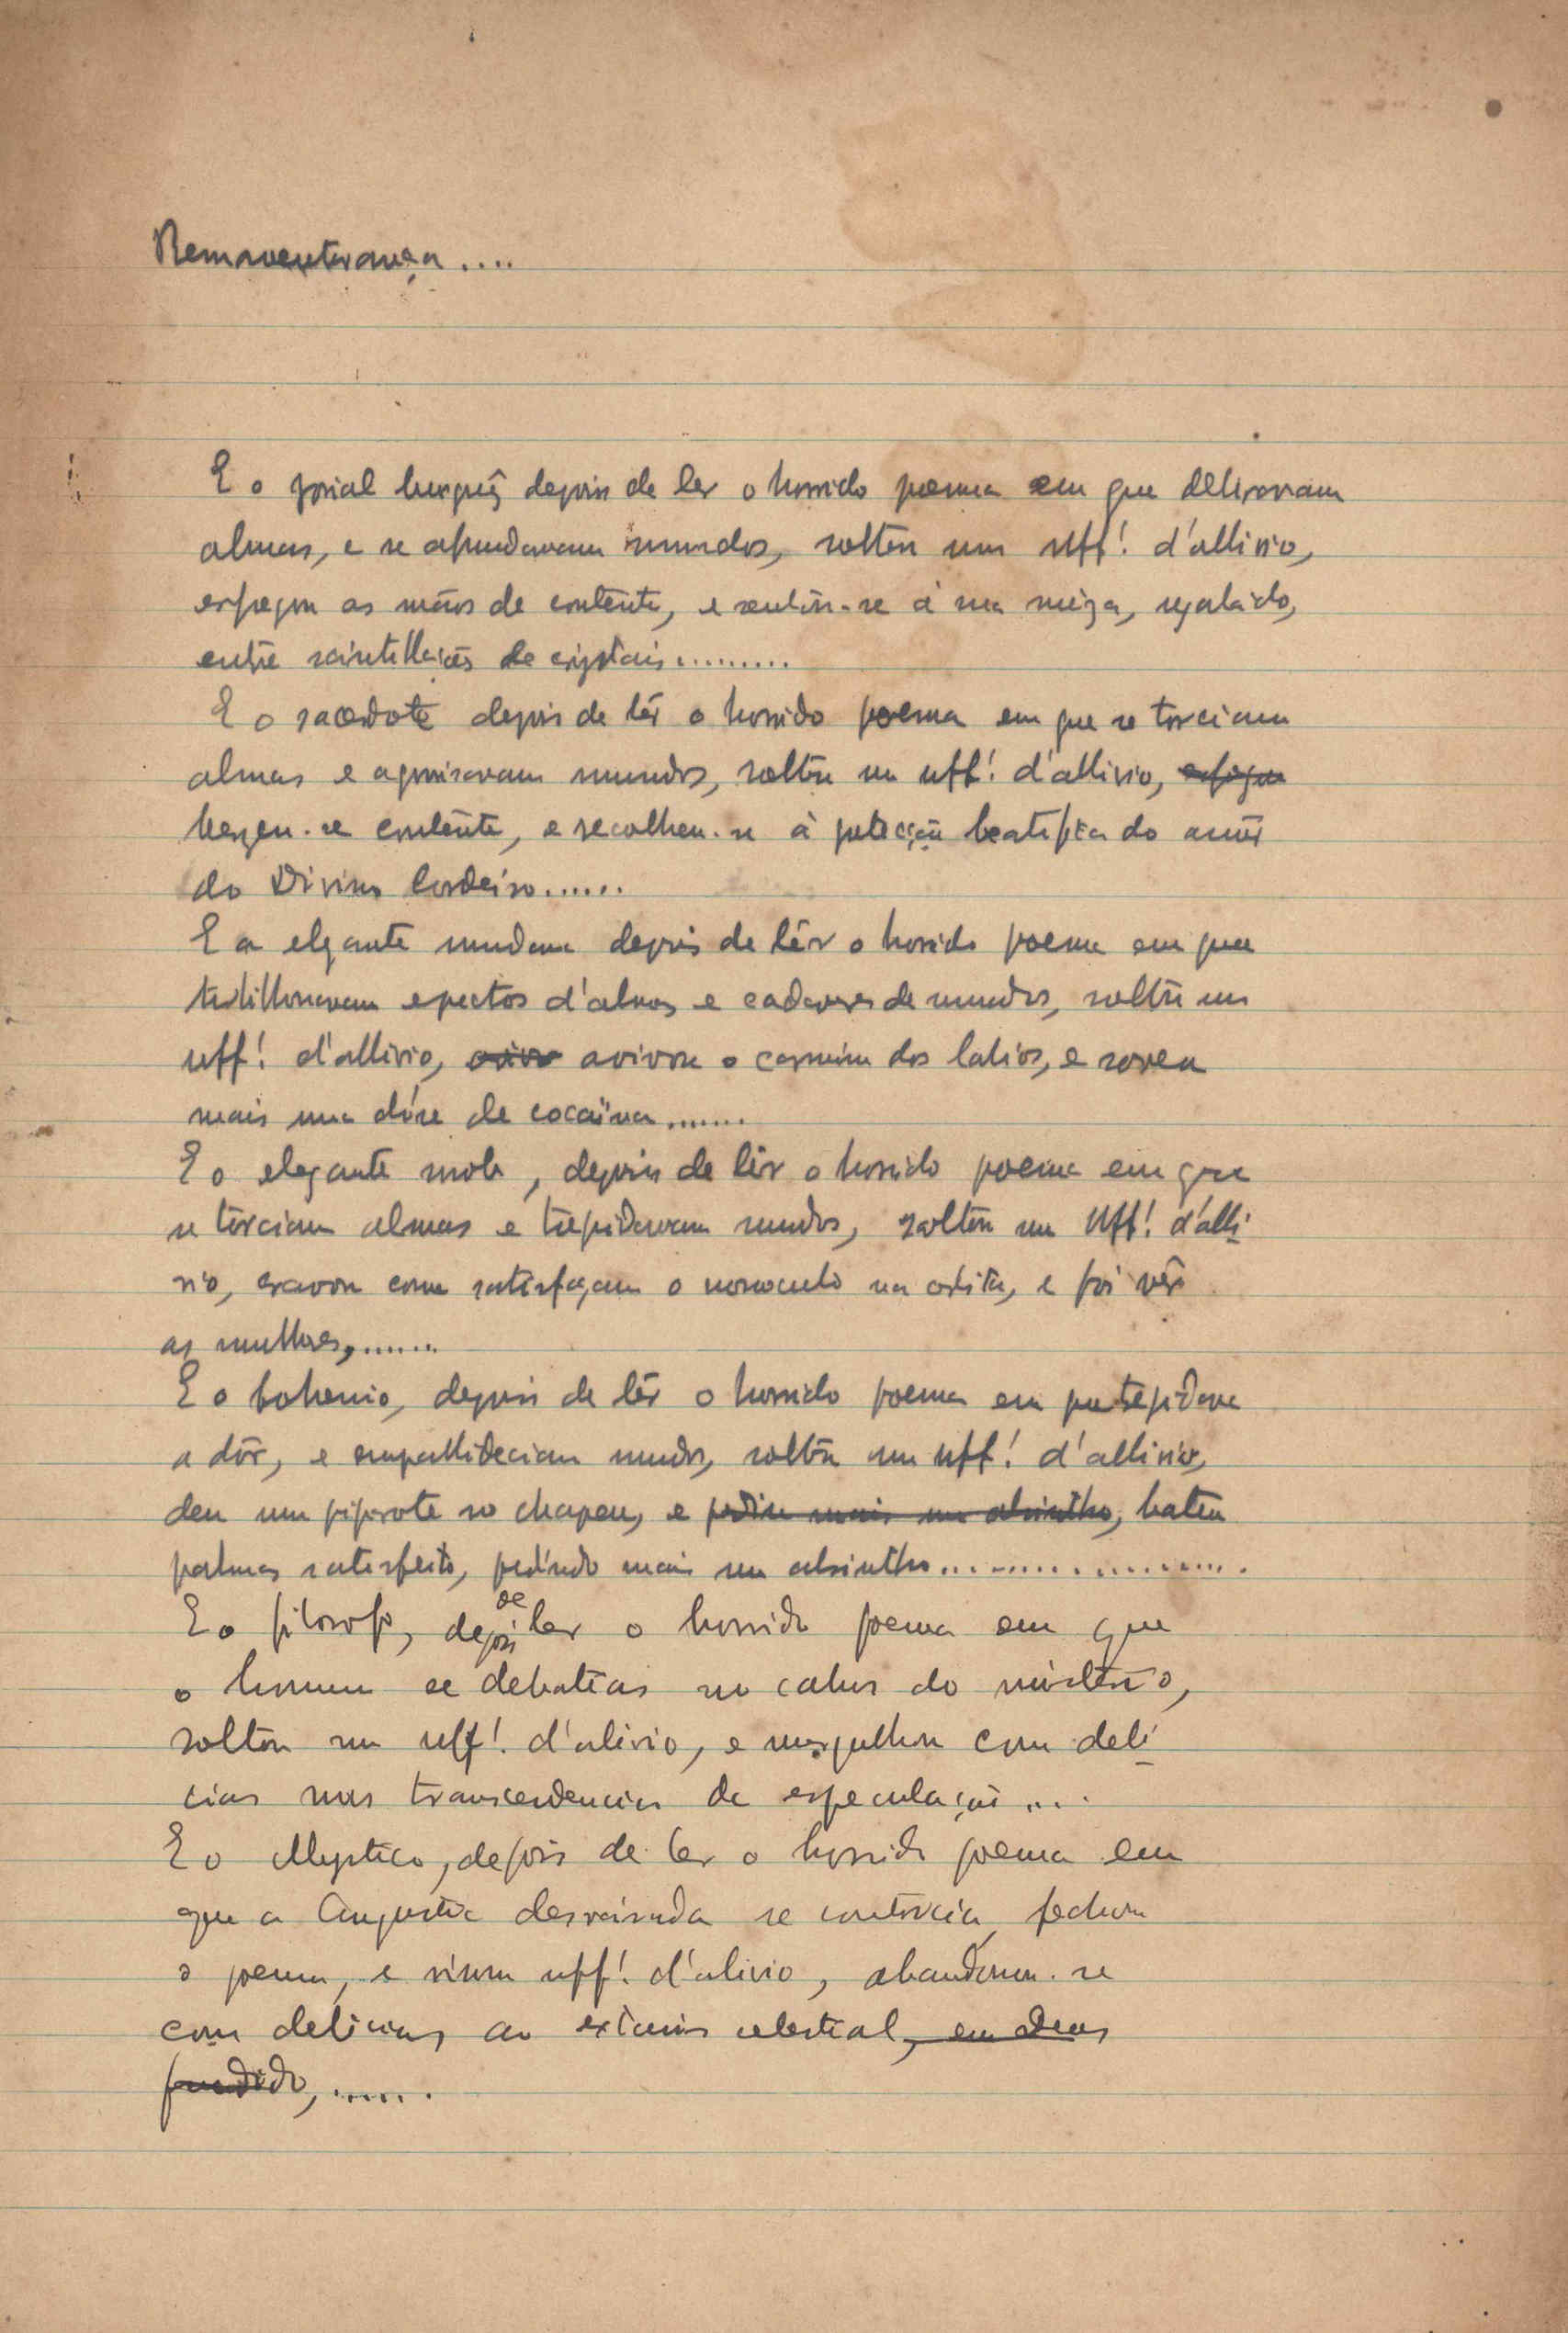 Bemaventurança....
E o jovial burguês depois de ler o horrido poema em que deliravam
almas, e se afundavam mundos, soltou um uff! d'allivio,
esfregou as mãos de contente, e sentou-se á sua meza, regalado,
entre scintillações de cristais.........
E o sacerdote depois de lêr o horrido poema em que se torciam
almas e agonisavam mundos, soltou um uff! d'allivio, esfregou
benzeu-se contente, e recolheu-se á beatifica do amôr
do Divino Cordeiro......
E a elegante mundana depois de lêr o horrido poema em que
turbilhonavam espectos d'almas e cadaveres de mundos, soltou um
uff! d'allivio, avivo avivou o carmim dos labios, e sorveu
mais uma dóse de cocaïna.......
E o elegante snob, depois de lêr o horrido poema em que
se torciam almas e trepidavam mundos, soltou um Uff! d'alli-
vio, cravou com satisfaçam o monoculo na orbita, e foi vêr
as mulheres,......
E o bohemio, depois de lêr o horrido poema em que trepidava
a dôr, e empallideciam mundos, soltou um uff! d'allivio,
deu um piparote no chapeu, e pediu mais um absintho, bateu
palmas satisfeito, pedindo mais um absintho..................
E o filosofo, depois de ler o horrido poema em que
o homem se debatias no cahos do misterio,
soltou um uff! d'alivio, e mergulhou com deli-
cias nas transcendencias da especulação...
E o Mystico, depois de ler o horrido poema em
que a Angustia desvairada se contorcia, fechou
o poema, e n'um uff! d'alivio, abandonou-se
com delicias ao extasis celestial, em Deus
fundido,......